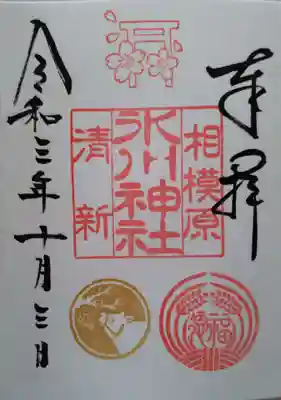 奉拝
相模原
氷川神社
清新
令和三年十月三日
福